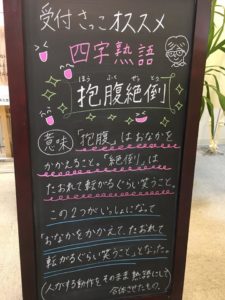 受付さっこオススメ
四字熟語
ほう ふく ぜっ とう
抱腹絶倒
意味 「抱腹」はおなかを
かかえること。「絶倒」は
たおれて転がるぐらい笑うこと
この2つがいっしょになって
「おなかをかかえて、たおれて
転がるぐらい笑うこと」となった。
(人がする動作をそのまま熟語にして
合体させたもの。